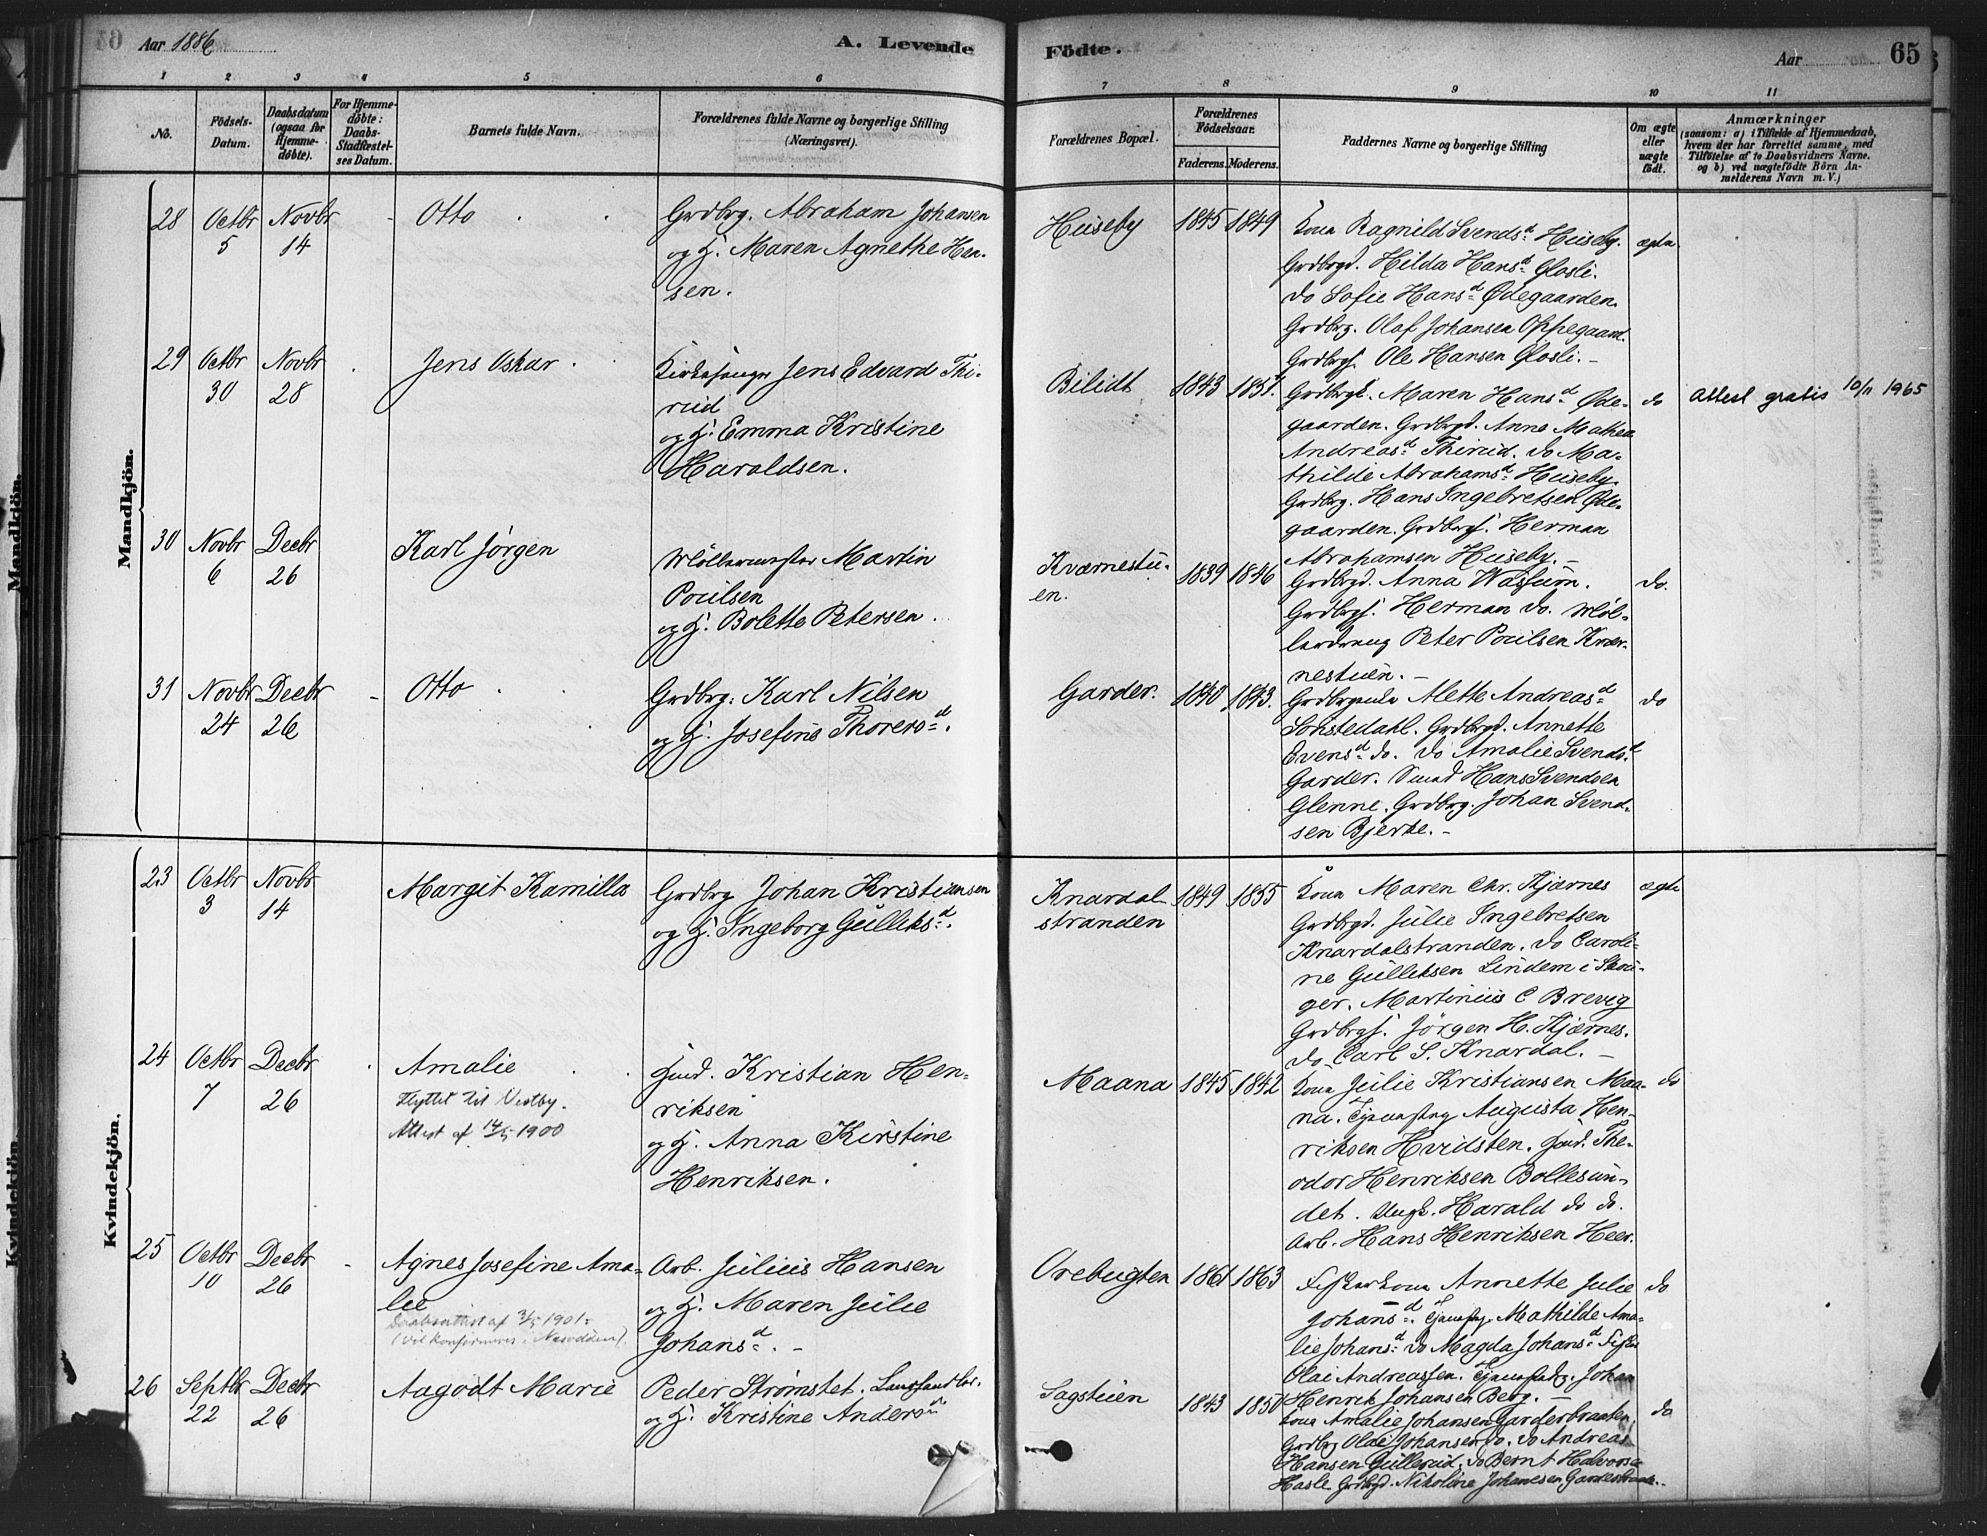 Aar 1886
A. Levende
Födte.
Aar
65
1 2 3 4 5 6 7 8 9 10 11
No.
Födsels-
Datum.
Daabsdatum
(ogsaa for
Hjemme-
döbte).
For Hjemme-
döbte:
Daabs-
Stadfæstel-
ses Datum.
Barnets fulde Navn.
Forældrenes fulde Navne og borgerlige Stilling
(Næringsvei).
Forældrenes Bopæl.
Forældrenes
Födselsaar.
Faderens. Moderens.
Faddernes Navne og borgerlige Stilling
Om ægte
eller
uægte
födt.
Anmærkninger
(saasom: a) i Tilfælde af Hjemmedaab,
hvem der har forrettet samme, med
Tilföielse af to Daabsvidners Navne.
og b) ved uægtefödte Börn An-
melderens Navn m. V.)
Mandkjön.
28
Octbr
5
Novbr
14
Otto
Grdbrg. Abraham Johansen
og H. Maren Agnethe Han-
sen.
Huseby
1845 1849
Kona Ragnild Svendsd. Huseby.
Grdbrgd. Hilda Hansd. Glosli.
do Sofie Hansd. Ødegaarden.
Grdbrg. Olaf Johansen Oppegaard.
Grdbrgs. Ole Hansen Glosli. -
ægte
29
Octbr
30
Novbr
28
Jens Oskar
Kirkesanger Jens Edvard Thi-
rud
og H. Emma Kristine
Haraldsen.
Bilidt
1843 1851.
Grdbrgk. Maren Hansd. Øde-
gaarden. Grdbrgd. Anne Mathea
Andreasd. Thirud. do Ma-
thilde Abrahamsd. Huseby.
Grdbrg. Hans Ingebretsen Øde-
gaarden. Grdbrgs. Herman
Abrahamsen Huseby. -
do
Attest gratis 10/11 1965
30
Novbr
6
Decbr
26
Karl Jörgen
Møllermester Martin
Poulsen
og H. Bolette Petersen.
Kværnestu-
en.
1839 1846
Grdbrgd. Anna Wassum.
Grdbrgs. Herman do. Møl-
lerdreng Peter Poulsen Kvær-
nestuen. -
do.
31
Novbr
24
Decbr
26
Otto
Grdbrg. Karl Nilsen
og H. Josefine Thoresd.
Garder.
1840 1843.
Alette Andreasd.
Grdbrgd. Annette
Evensd. do. do Amalie Svendsd.
Garder. Smed Hans Svendsen
Glenne. Grdbrg. Johan Svend-
sen Bjerke. -
do
Kvindekjön.
23
Octbr
3
Novbr
14
Margit Kamilla
Grdbrg Johan Kristiansen
og H. Ingeborg Gulliksd.
Knardal
stranden
1849 1855
Kona Maren Chr. Kjærnes
Grdbrgd. Julie Ingebretsen
Knardalstranden. do Caroli-
ne Gulliksen Lindem i Skou-
ger. Martinius C Brevig
Grdbrgs. Jörgen H. Kjærnes.
do Carl S. Knardal. -
ægte
24
Octbr
7
Decbr
26
Amalie
Flyttet til Vestby.
Attest af 14/5 1900
Husd. Kristian Hen-
riksen
og H. Anna Kirstine
Henriksen.
Maana
1845 1842
Kona Julie Kristiansen Maa-
na. Tjenestepg Augusta Hen-
riksen Hvidsten. Husd. The-
odor Henriksen Bollesun-
det. Ungk. Harald do do.
Arb. Hans Henriksen Heer.
do
25
Octbr
10
Decbr
26
Agnes Josefine Ama-
lie
Daabsattest af 3/5 1901.
(Vil konfirmeres i Nesodden).
Arb. Julius Hansen
og H. Maren Julie
Johansd. -
Orebugten
1861 1863
Fiskerkona Annette Julie
Johansd. Tjenestepg. Mathilde Ama-
lie Johansd. do Magda Johansd. Fisker
Olai Andreassen. Johan
Henrik Johansen Berg. -
do
26
Septbr
22
Decbr
26
Aagodt Marie
Peder Strømstet.
og H. Kristine Andersd.
Sagstuen
1843 1850
Kona Amalie Johansen Garderbraaten.
Grdbrg Olai Johansen do. do Andreas
Hansen Gullerud. do Bernt Halvorsen
Hasle Grdbrgd. Nikoline Johannesen Garderbraaten.
do